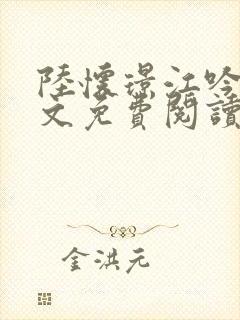 陸懷璟江吟
文免費閱讀
金洪元